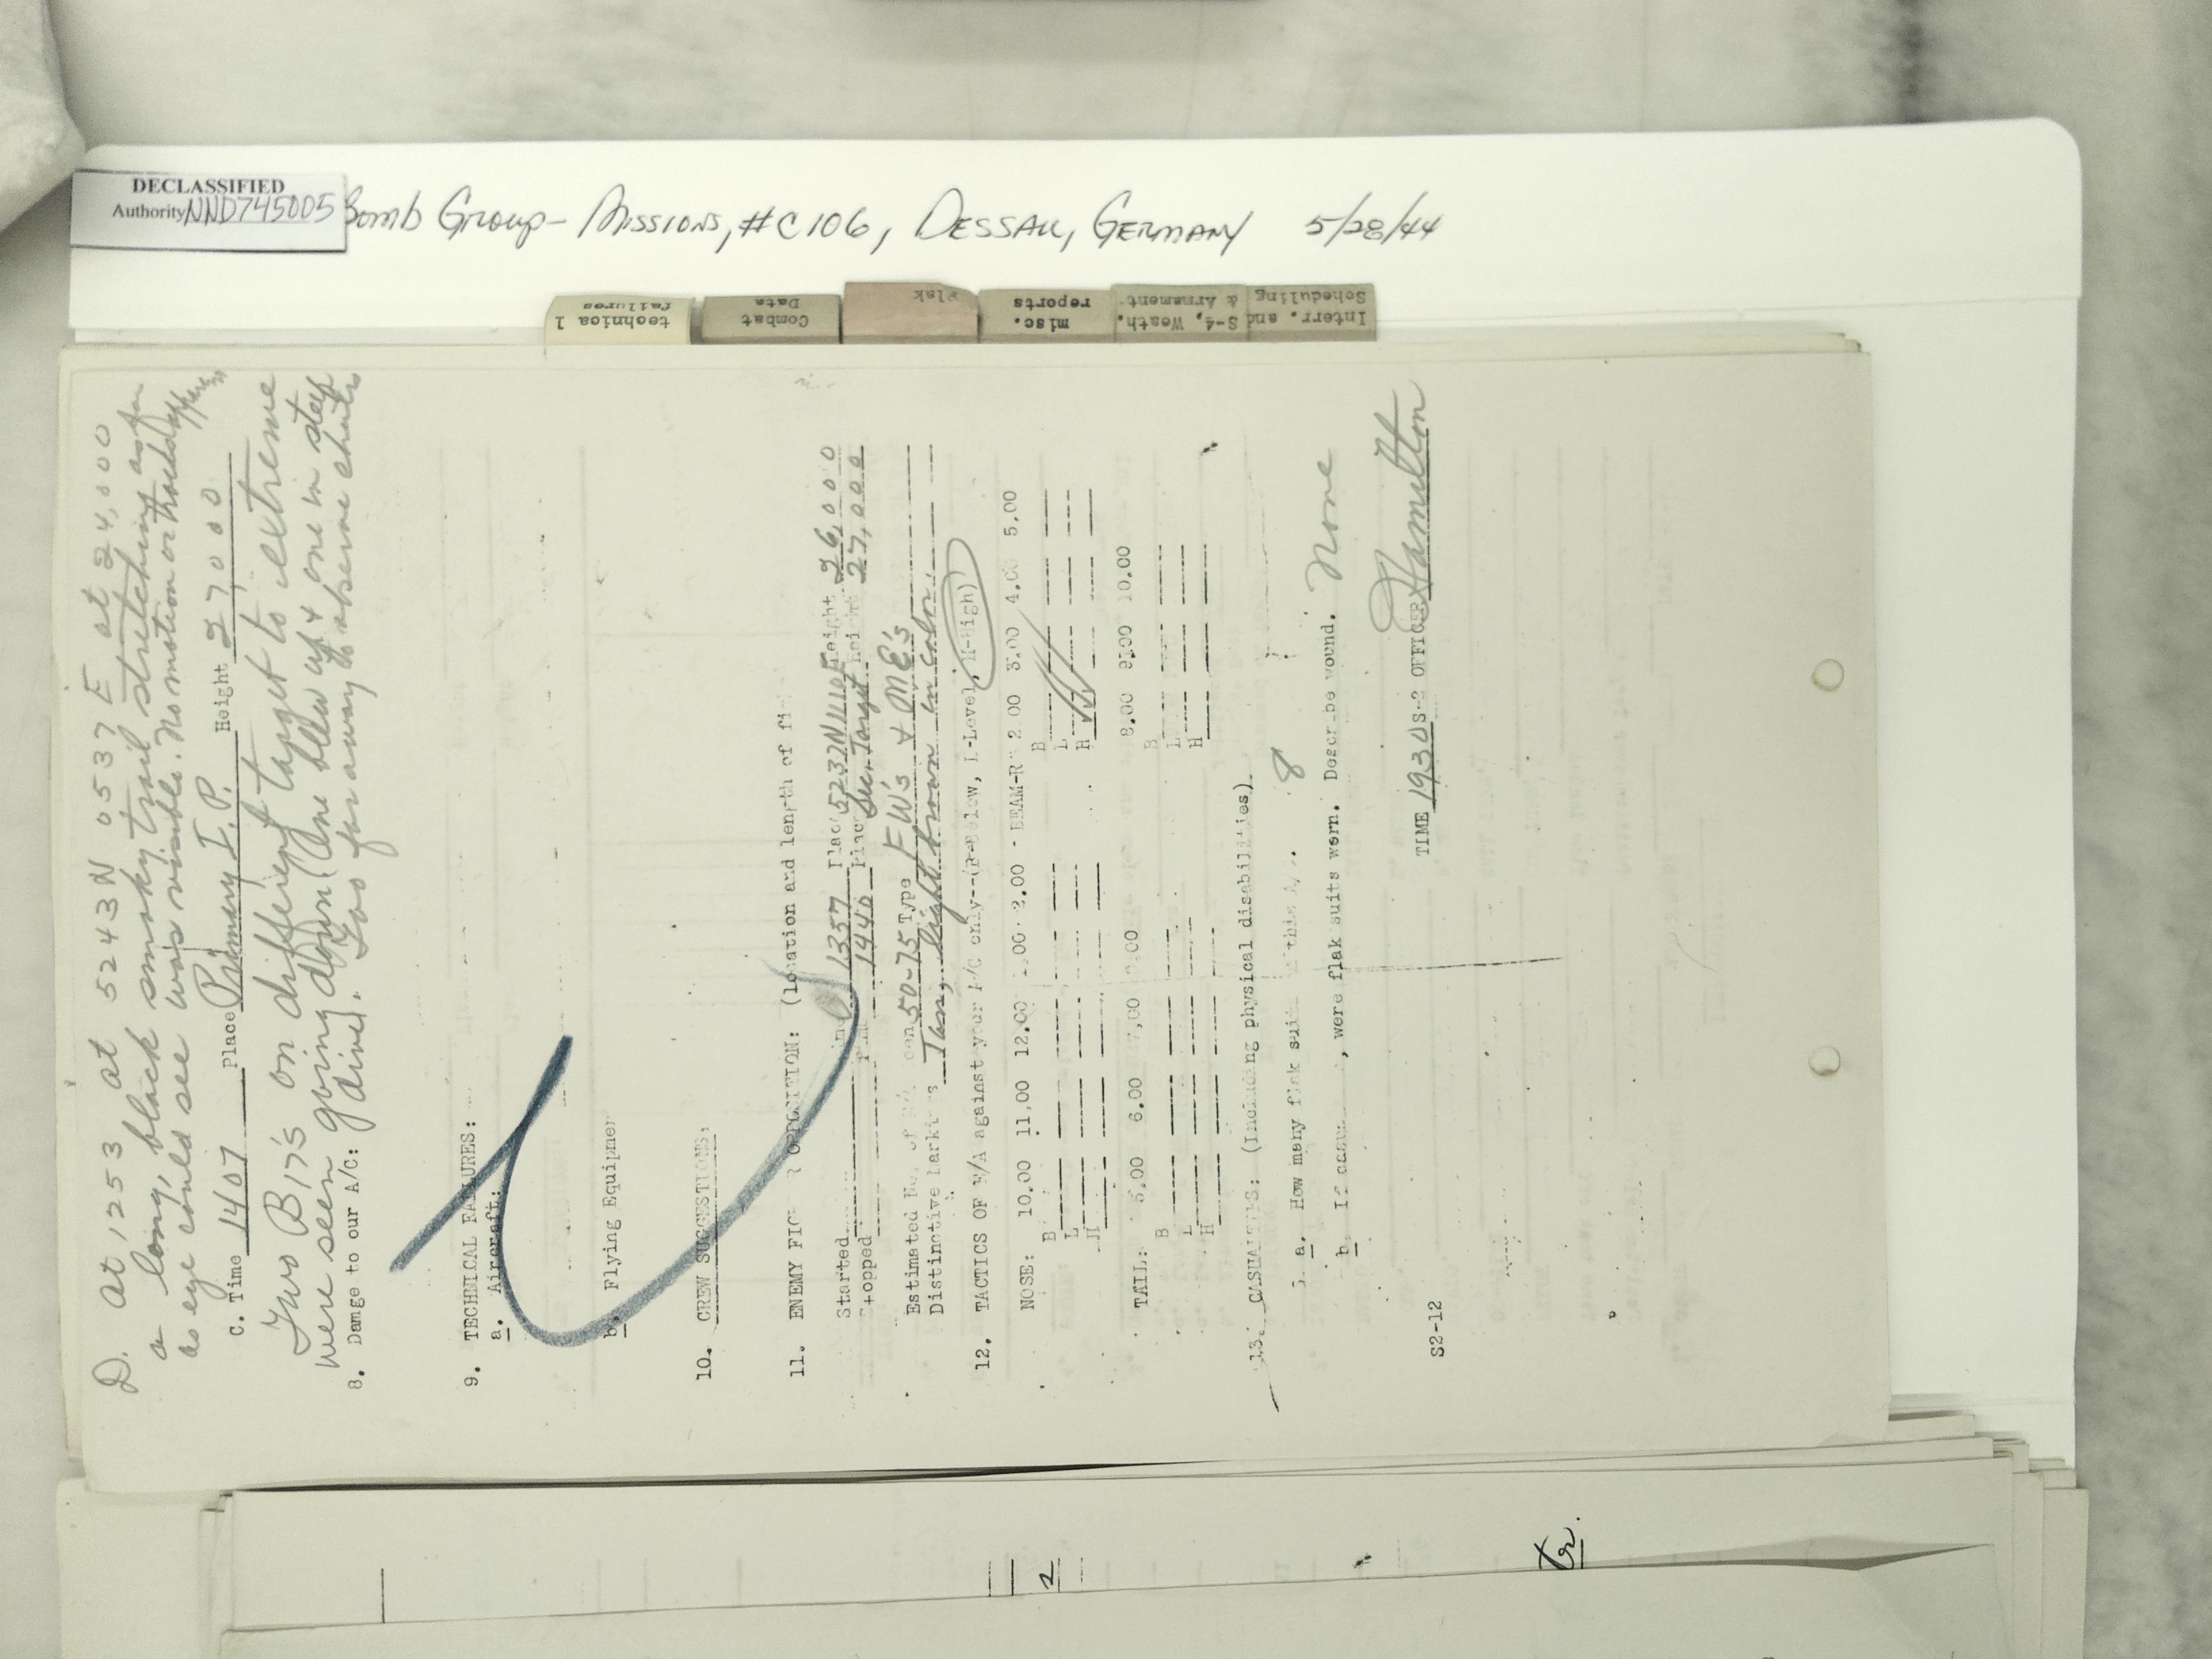 DECLASSIFIED
Authority NND745005
Bomb Group - Missions, #C106, Dessau, Germany 5/28/44
technical failures
Combat Data
Flak
misc. reports
S-4, Weath. & Armament
Interr. and Scheduling
D. At 1253 at 5243N 0537E at 24,000
a long, black smoky trail stretching as far
as eye could see was visible. No motion or
c. Time 1407 Place Primary I.P. Height 27000
Two B17's on different target to extreme
were seen going down (One blew up & one in steep
8. Damage to our A/C: dive). Too far away to observe chutes
9. TECHNICAL FAILURES:
a. Aircraft:
b. Flying Equipmen
10. CREW SUGGESTIONS:
11. ENEMY FIG R OPPOSITION: (location and length of fi
Started 1357 Place 5237N Height 26,000
Stopped 1440 Place Target Height 27,000
Estimated No. of E/A 50-75 Type FW's & ME's
Distinctive Markings Tan, light brown in color.
12. TACTICS OF E/A against your A/C only--(B-Below, L-Level, H-High)
NOSE: 10.00 11.00 12.00 1.00 2.00 - BEAM-R 2.00 3.00 4.00 5.00
B B
L L
H H
TAIL: 5.00 6.00 7.00 8.00 9.00 10.00
B B
L L
H H
13. CASUALTIES: (Including physical disabilities).
a. How many flak suit this A/. 8
b. If casu , were flak suits worn. Describe wound. None
TIME 1930 S-2 OFFICER Hamilton
S2-12
2
tr.